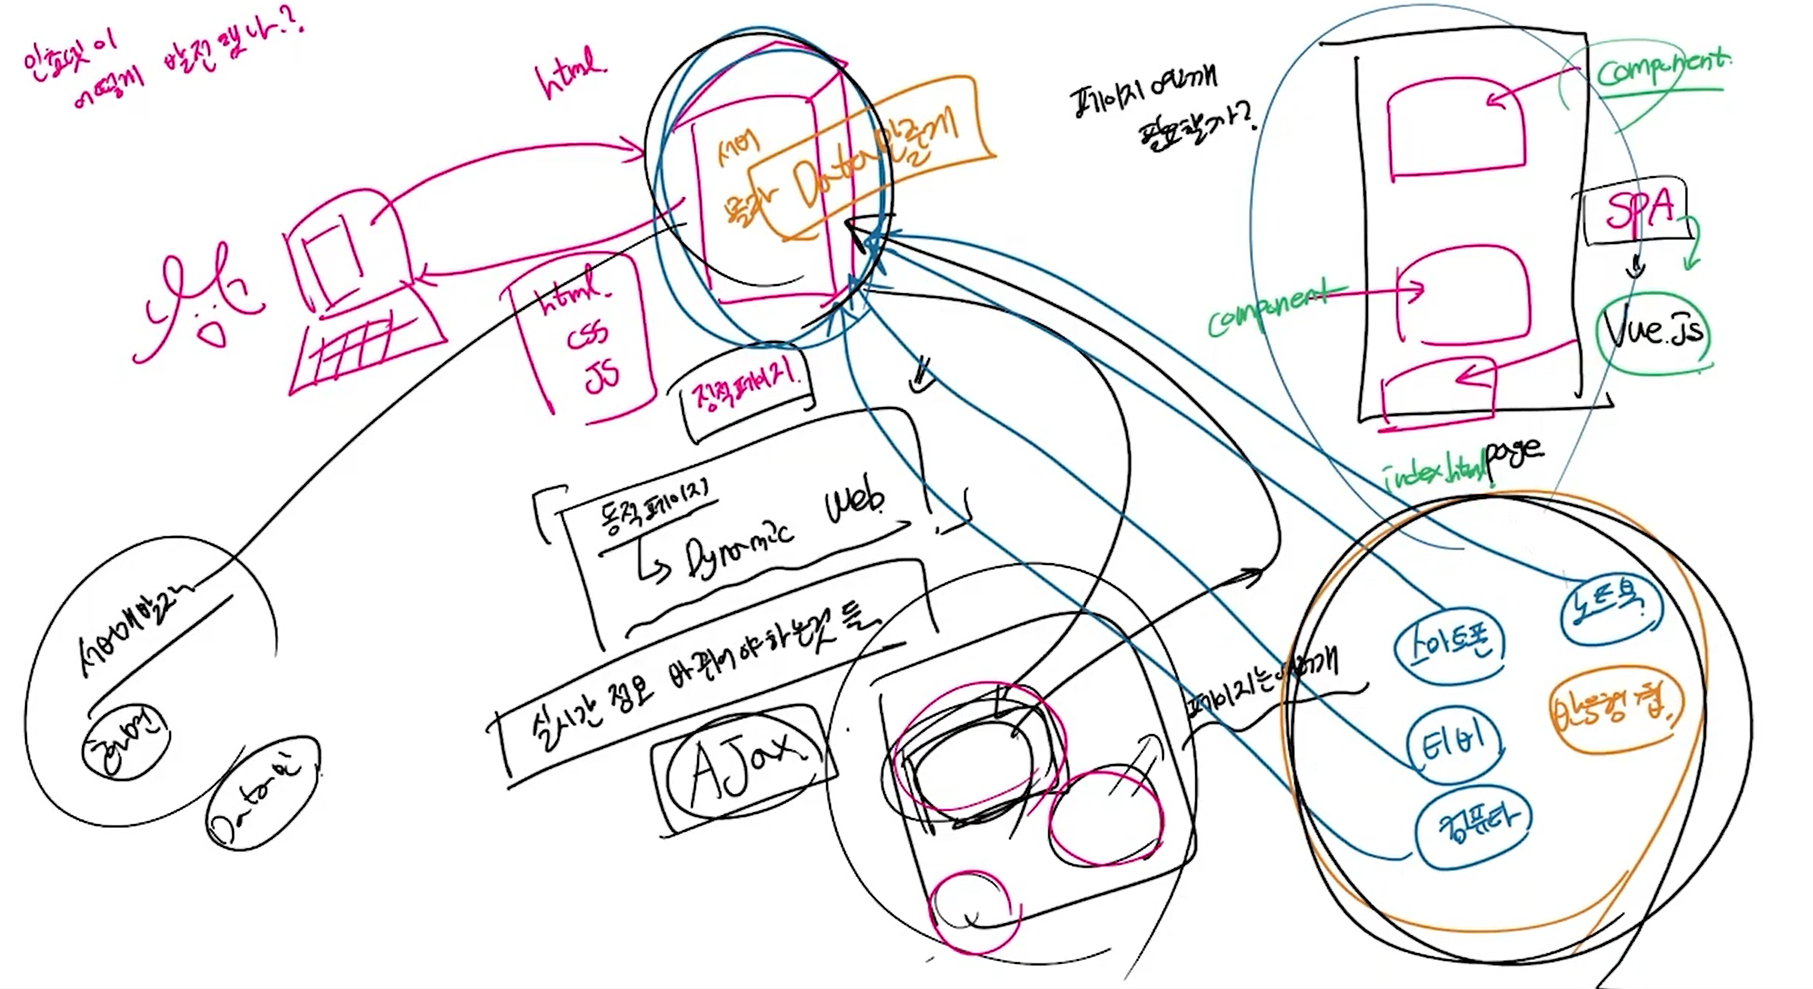 인터넷이
어떻게 발전했나??
html
서버
Data만줄게
html
CSS
JS
정적페이지
동적페이지
↳ Dynamic Web
실시간 정보 바뀌어야하는것들
AJax
서버개발자
Data만
페이지 여러개
필요할까?
component
SPA
component
Vue.js
index.html page
페이지는 여러개
스마트폰
노트북
티비
반응형 웹
컴퓨타